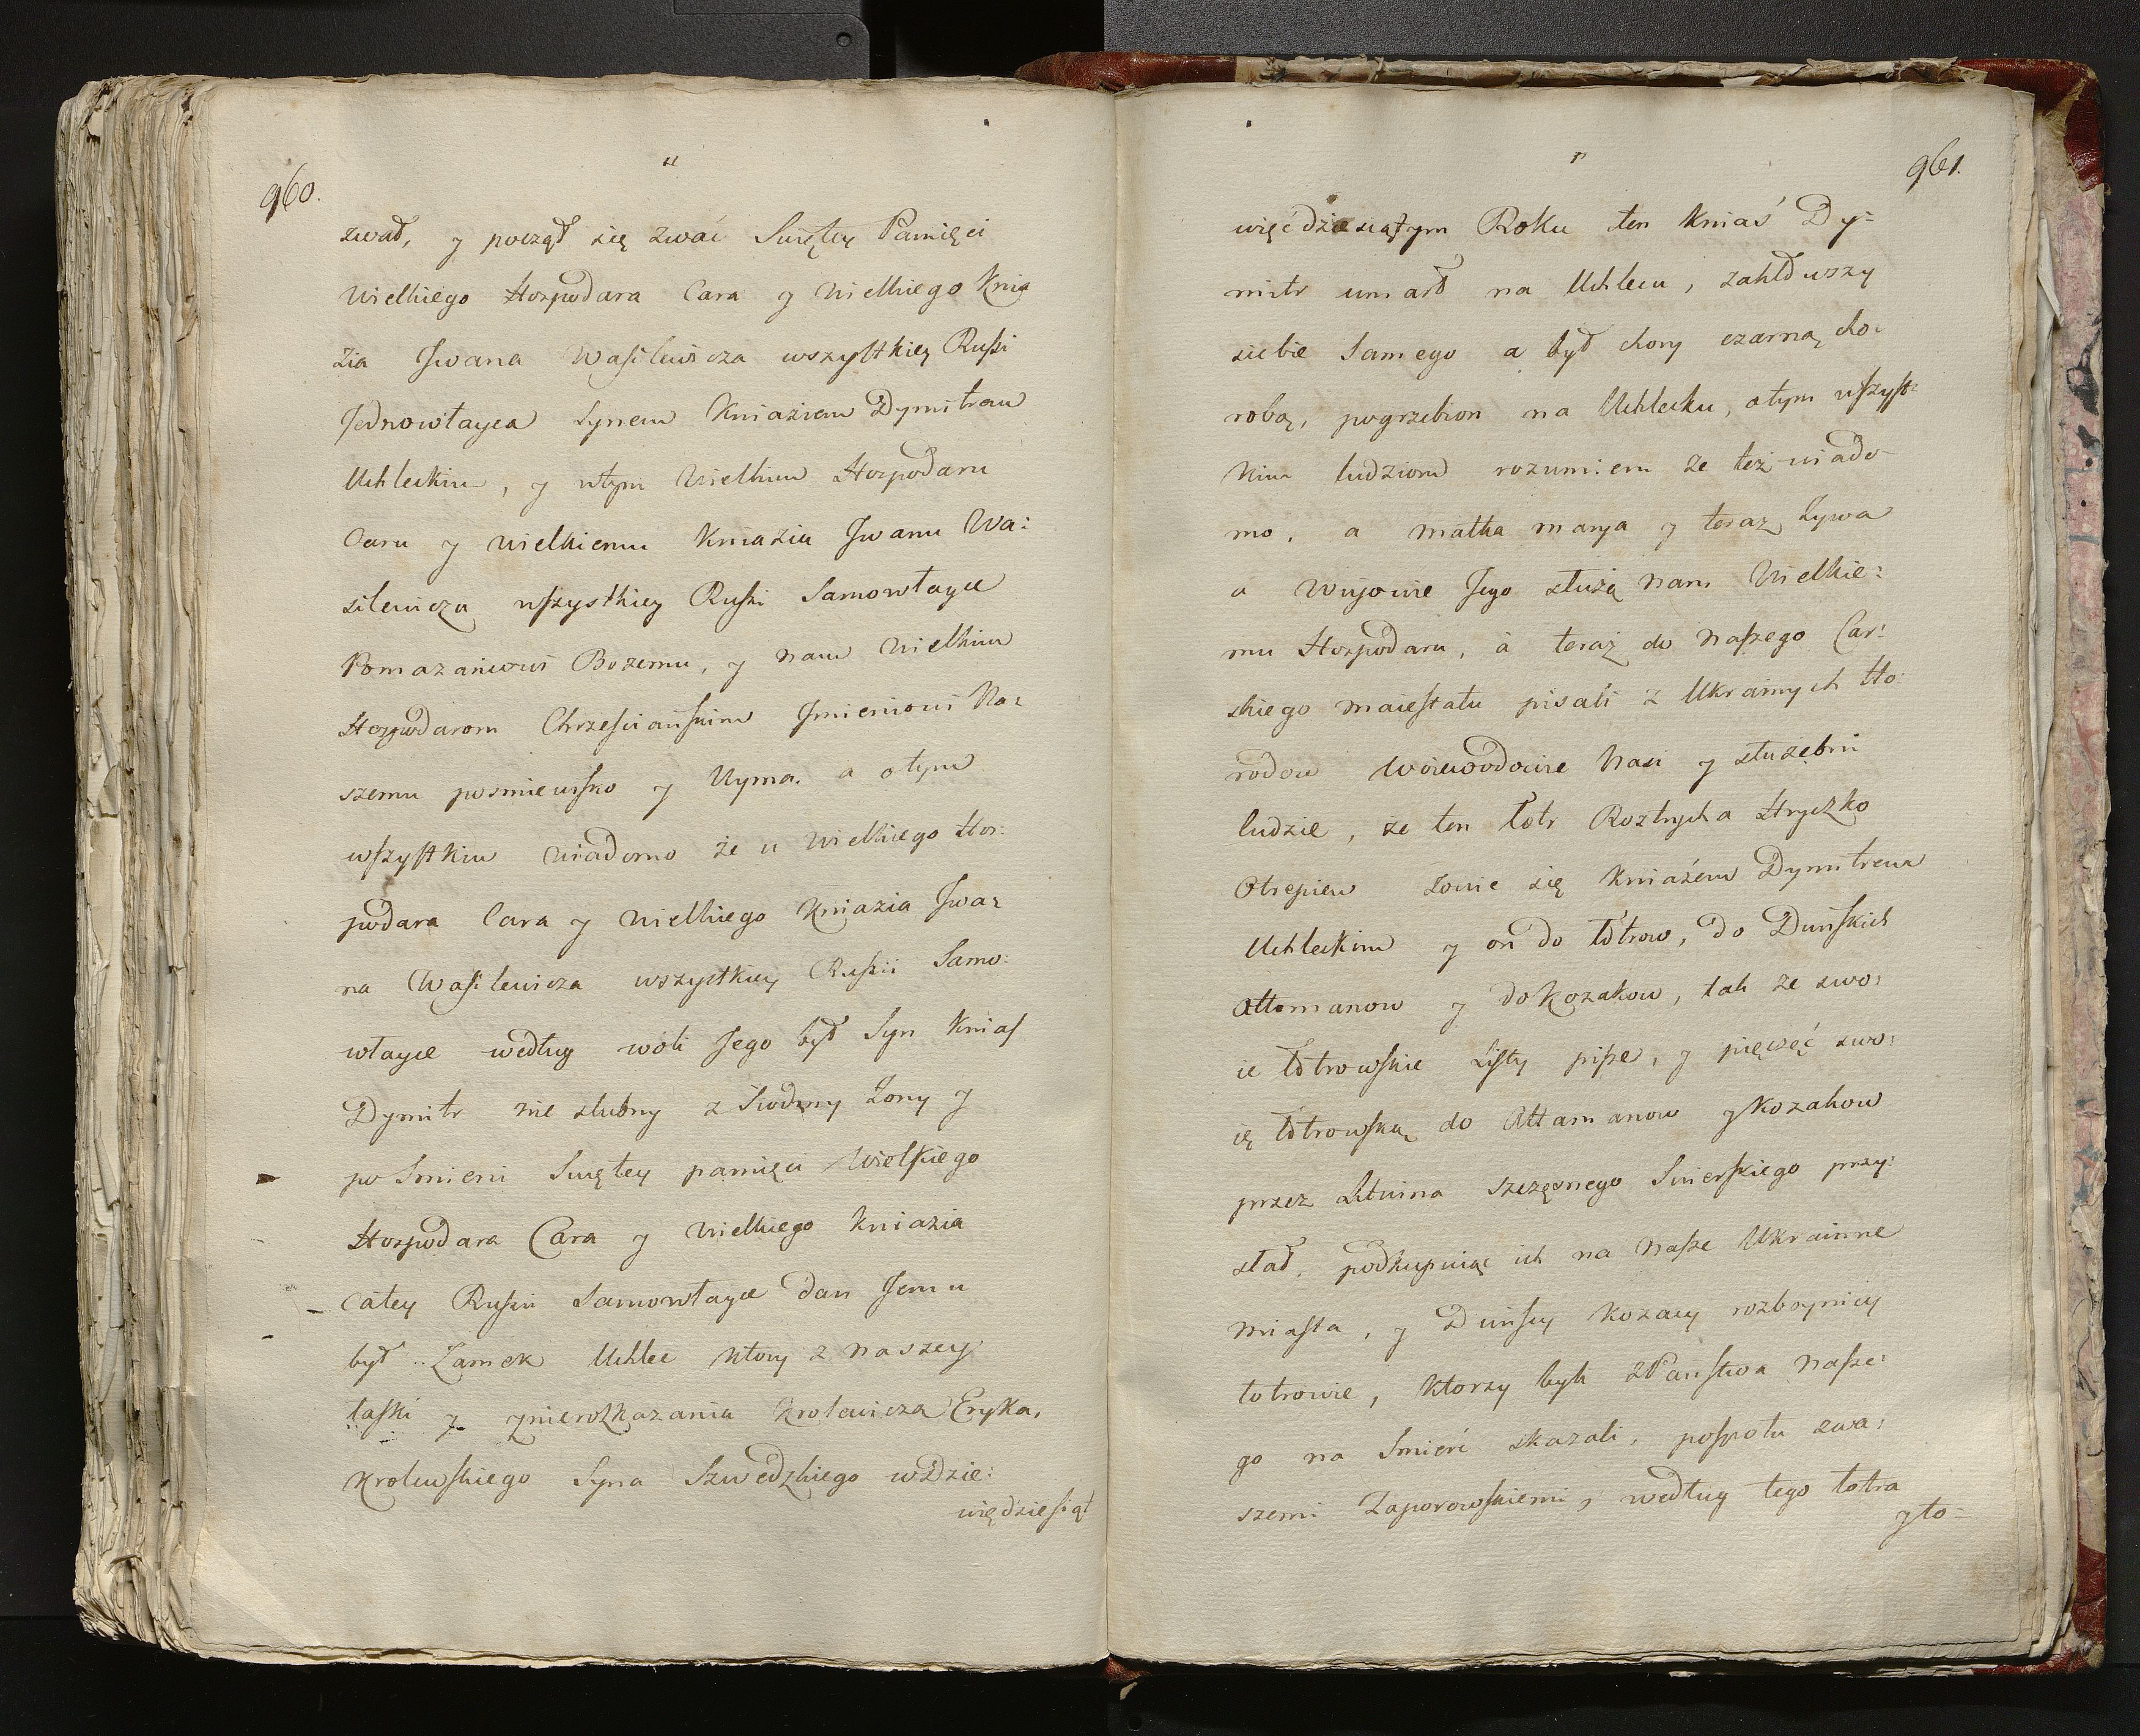 960.
zwał, y począł się zwać Swiętey Pamięci
Wielkiego Hospodara Cara y Wielkiego Knia
zia Jwana Wasilewicza wszystkiey Russi
Jednowłayca Synem Kniaziem Dymitrem
Uhleckim, y wtym Wielkim Hospodaru
Caru y Wielkiemu Kniaziu Jwanu Wa:
silewiczu wszystkiey Russi Samowłayce
Pomazańcowi Bozemu, y nam Wielkim
Hospodarom Chrzesciańskim Jmieniowi Na:
szemu posmiewisko y Uyma. a otym
wszystkim wiadomo że u Wielkiego Hos:
podara Cara y Wielkiego Kniazia Jwa:
na Wasilewicza wszystkiey Russii Samo:
włayce według woli Jego był Syn Knias
Dymitr nie slubny z Siodmy Zony y
po Smierci Swiętey pamięci Wielkiego
Hospodara Cara y Wielkiego Kniazia
Całey Russii Samowłayce dan Jemu
był Zamek Uhlec ktory z naszey
łaski y Krolewicza Eryka,
Krolewskiego Syna Szwedzkiego wdzie:
więdziesiąt
961.
więćdziesiątym Roku ten Kniaś Dy=
mitr umarł na Uhlecu, zakłuwszy
siebie Samego a był chory czarną cho:
robą, pogrzebion na Uhlecku, otym wszyst:
kim ludziom rozumiem że też wiado-
mo, a matka marya y teraz żywa
a Wujowie Jego służą nam Wielkie:
mu Hospodaru, à teraz do naszego Car:
skiego maiestatu pisali z Ukrainych Ho:
rodow Woiewodowie Nasi y służebni
ludzie, że ten łotr Roztrycha Hryczko
Otrepiew zowie się Kniaźem Dymitrem
Uhleckim y on do łotrow, do Duńskich
Attomanow y do Kozakow, tak że swo:
ie łotrowskie Listy pisze, y pięczęć swo:
ię łotrowską do Attamanow y Kozakow
przez Litwina Szczęsnego Swierskiego przy:
słał, podkupuiąc ich na Nasze Ukrainne
Miasta, y Duńscy Kozacy rozboynicy
łotrowie, ktorzy byli z Państwa Nasze:
go na Smierć skazali, pospołu zwa:
szemi Zaporowskiemi, według tego łotra
y ło=